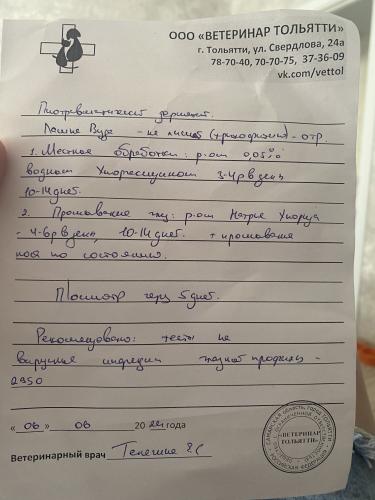 ООО «ВЕТЕРИНАР ТОЛЬЯТТИ»
г. Тольятти, ул. Свердлова, 24а
78-70-40, 70-70-75, 37-36-09
vk.com/vettol
Посттравматический дерматит.
Лампа Вуда - на лишай (трихофития) - отр.
1. Местная обработка: р-ом 0,05%
водного Хлоргексидина 3-4 р в день
10-14 дней.
2. Промывание глаз: р-ом Натрия Хлорида
- 4-6 р в день, 10-14 дней. + промывание
носа по состоянию.
Посмотр через 5 дней.
Рекомендовано: тесты на
вирусные инфекции профиль -
2950
« 06 » 06 20 года
Ветеринарный врач
«ВЕТЕРИНАР
ТОЛЬЯТТИ»